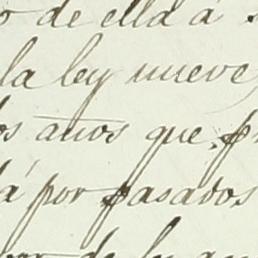 de ella á
la ley nueve,
os años que
á por pasados
de